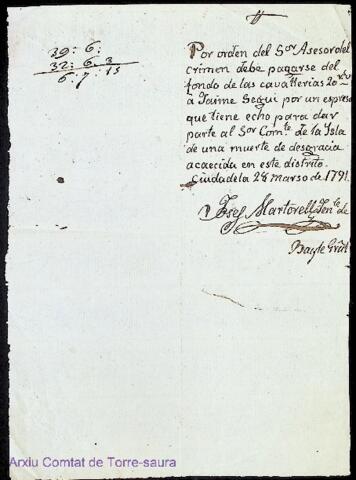 39: 6:
32: 6. 3
6. 7. 15
Por orden del S.or Asesor del
crimen debe pagarse del
fondo de las cavallerias 20
a Jaime Segui por un espreso
que tiene echo para dar
parte al S.or Com.te de la Isla
de una muerte de desgracia
acaecida en este distrito.
Ciudadela 28 marso de 1791.
Martorell Ten.te de
Bayle
Arxiu Comtat de Torre-saura